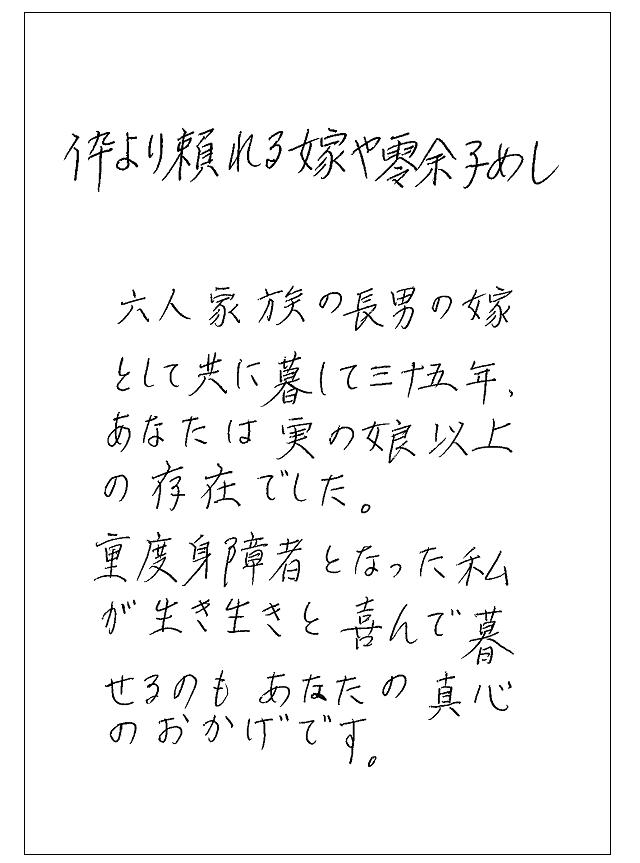 伜より頼れる嫁や零余子めし
六人家族の長男の嫁
として共に暮して三十五年、
あなたは実の娘以上
の存在でした。
重度身障者となった私
が生き生きと喜んで暮
せるのもあなたの真心
のおかげです。